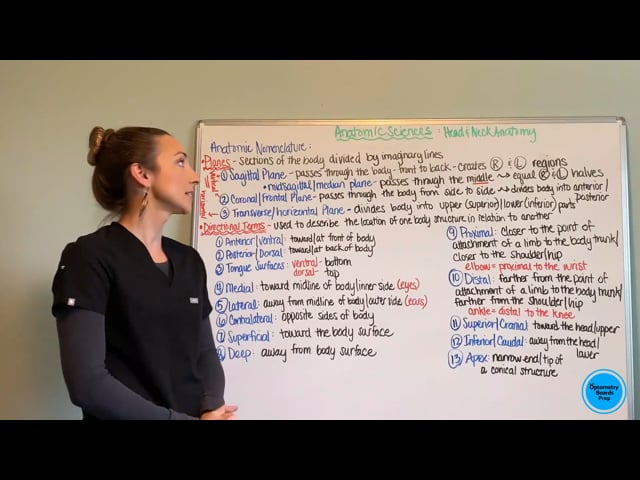 Anatomic Sciences : Head & Neck Anatomy
Anatomic Nomenclature:
• Planes - sections of the body divided by imaginary lines
① Sagittal Plane - passes through the body - front to back - creates Ⓡ & Ⓛ regions
• midsagittal/median plane - passes through the middle → equal Ⓡ & Ⓛ halves
② Coronal/Frontal Plane - passes through the body from side to side → divides body into anterior/
posterior
③ Transverse/horizontal Plane - divides body into upper (superior)/lower (inferior) parts
• Directional Terms - used to describe the location of one body structure in relation to another
① Anterior/ventral: toward/at front of body
② Posterior/Dorsal: toward/at back of body
③ Tongue Surfaces: ventral - bottom
dorsal - top
④ Medial: toward midline of body/inner side (eyes)
⑤ Lateral: away from midline of body/outer side (ears)
⑥ Contralateral: opposite sides of body
⑦ Superficial: toward the body surface
⑧ Deep: away from body surface
⑨ Proximal: closer to the point of
attachment of a limb to the body trunk/
closer to the shoulder/hip
elbow = proximal to the wrist
⑩ Distal: farther from the point of
attachment of a limb to the body trunk/
farther from the shoulder/hip
ankle = distal to the knee
⑪ Superior/Cranial: toward the head/upper
⑫ Inferior/Caudal: away from the head/
lower
⑬ Apex: narrow end/tip of
a conical structure
Optometry
Boards
Prep